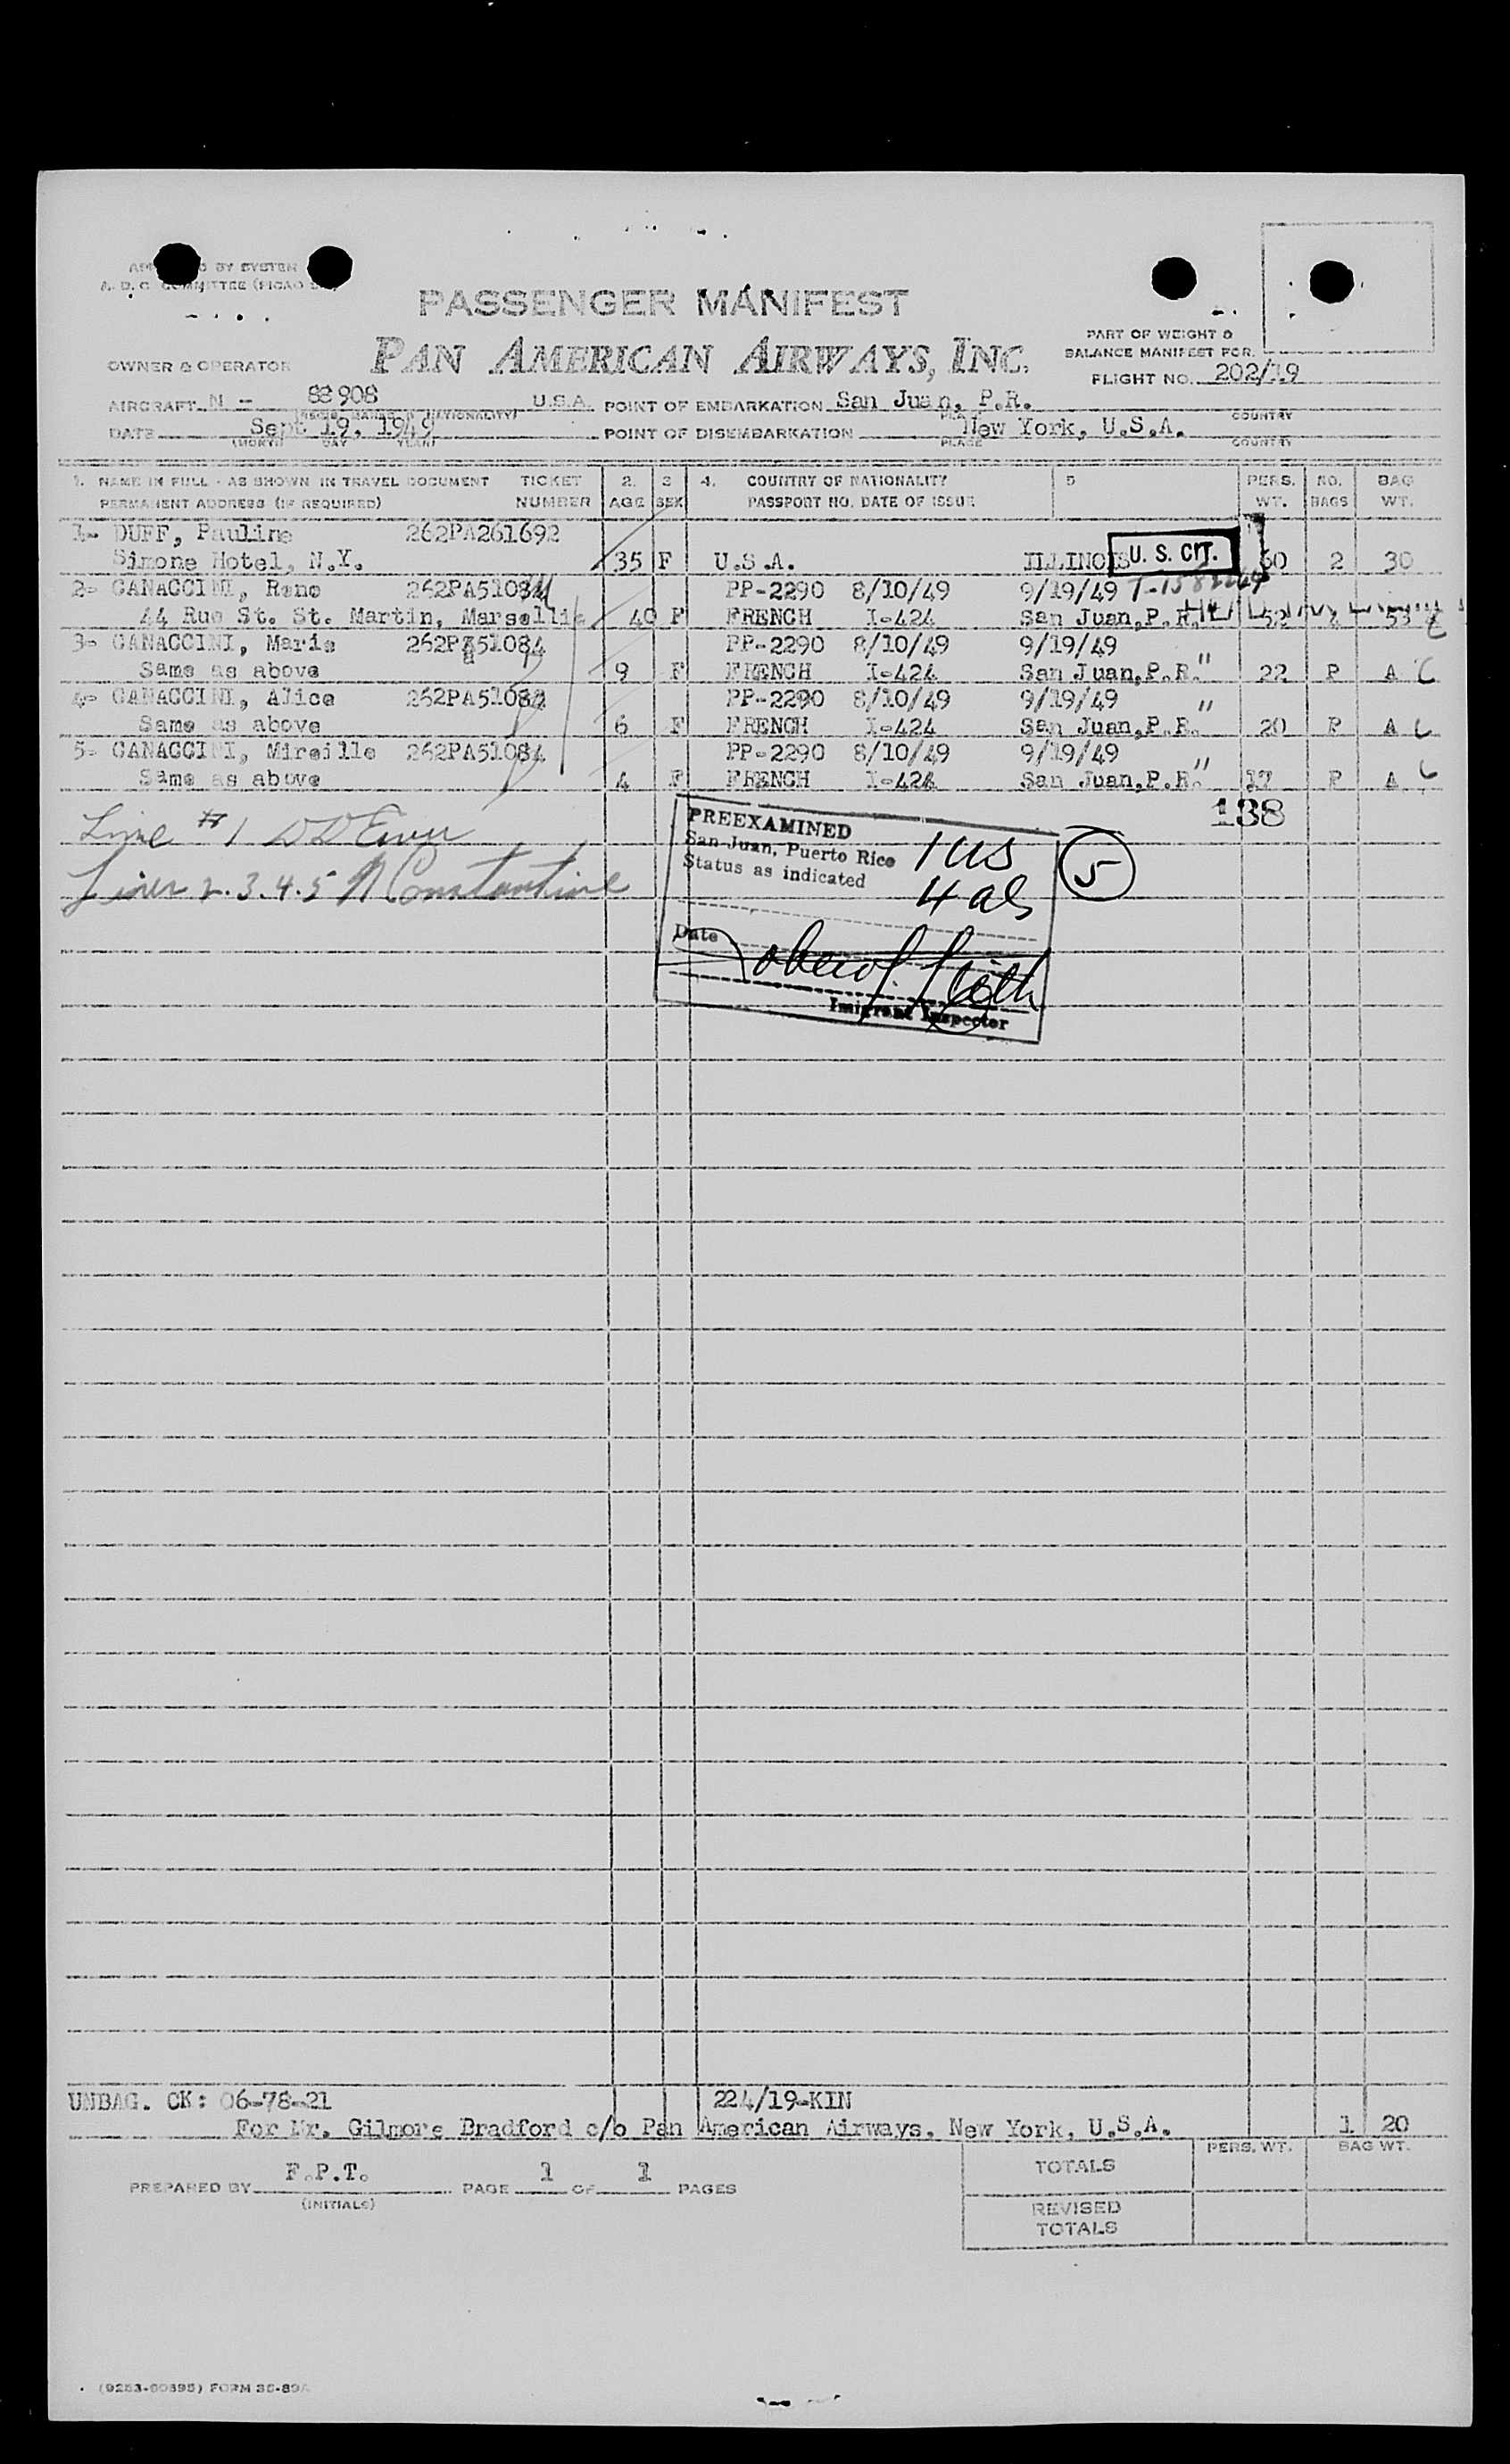 BY SYSTEM
PASSENGER MANIFEST
PART OF WEIGHT &
BALANCE MANIFEST FOR
OWNER & OPERATOR PAN AMERICAN AIRWAYS, INC.
FLIGHT NO. 202/19
AIRCRAFT N - 88908 U.S.A. POINT OF EMBARKATION San Juan, P.R.
COUNTRY
DATE Sept 19, 1949 POINT OF DISEMBARKATION New York, U.S.A.
(MONTH DAY YEAR) PLACE COUNTRY
1. NAME IN FULL - AS SHOWN IN TRAVEL DOCUMENT TICKET 2. 3 4. COUNTRY OF NATIONALITY 5 PERS. NO. BAG
PERMANENT ADDRESS (IF REQUIRED) NUMBER AGE SEX PASSPORT NO. DATE OF ISSUE WT. BAGS WT.
1- DUFF, Pauline 262PA261692
Simone Hotel, N.Y. 35 F U.S.A. ILLINOIS U. S. CIT. 2 30
2- CANACCINI, Rene 262PA51084 PP-2290 8/10/49 9/19/49
44 Rue St. St. Martin, Marsellie 40 F FRENCH I-424 San Juan,P.R.
3- CANACCINI, Marie 262PA51084 PP-2290 8/10/49 9/19/49
Same as above 9 F FRENCH I-424 San Juan,P.R. " 22 P A C
4- CANACCINI, Alice 262PA51084 PP-2290 8/10/49 9/19/49
Same as above 6 F FRENCH I-424 San Juan,P.R. " 20 P A C
5- CANACCINI, Mireille 262PA51084 PP-2290 8/10/49 9/19/49
Same as above 4 F FRENCH I-424 San Juan,P.R. " 17 P A C
138
Line #1
Lines 2.3.4.5 N Constantine
PREEXAMINED
San Juan, Puerto Rico 1 US
Status as indicated 4 als
5
Date
Imigrant Inspector
UNBAG. CK: 06-78-21 224/19-KIN
For Mr. Gilmore Bradford c/o Pan American Airways, New York, U.S.A. 1 20
PREPARED BY F.P.T. PAGE 1 OF 1 PAGES
(INITIALS)
PERS. WT. BAG WT.
TOTALS
REVISED
TOTALS